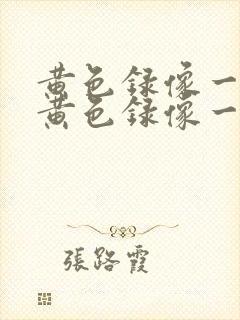 黄色録像一
黄色録像一
張路霞